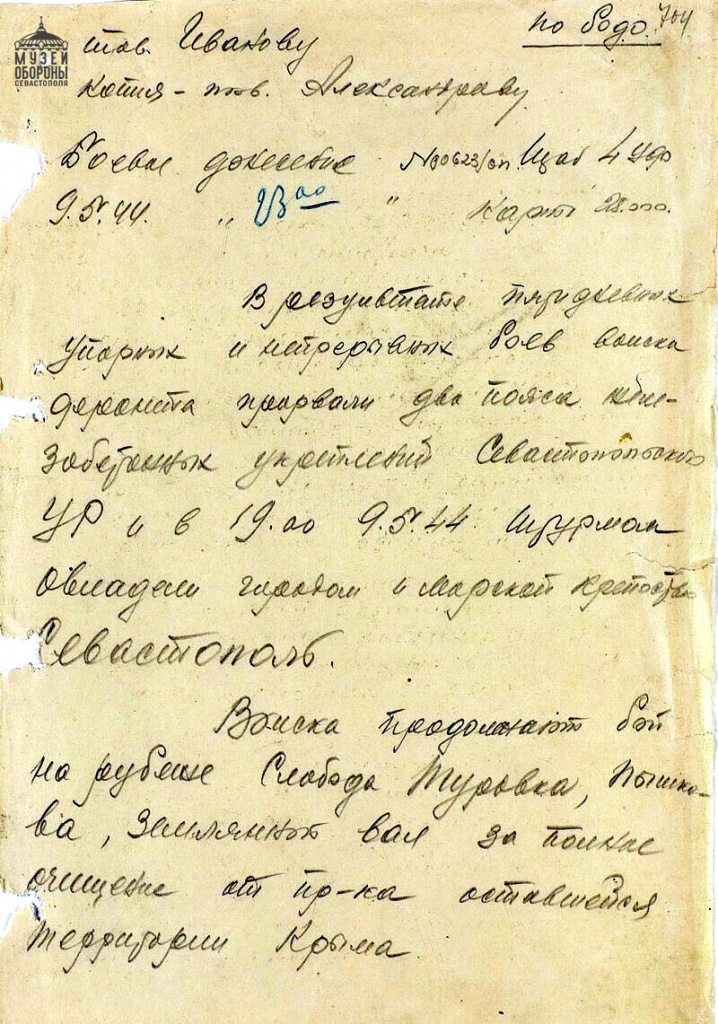 МУЗЕЙ
ОБОРОНЫ
СЕВАСТОПОЛЯ
по бодо. 704
тов. Иванову
копия - тов. Александрову
Боевое донесение №00623/оп. Штаб 4 Уф
9.5.44. " 23 00 " Карты
В результате пятидневных
упорных и непрерывных боев войска
фронта прорвали два пояса желе-
зобетонных укреплений Севастопольского
УР и в 19.00 9.5.44 штурмом
овладели городом и морской крепостью
Севастополь.
Войска продолжают бой
на рубеже Слобода Туровка, Пышко-
ва, Земляной вал за полное
очищение от пр-ка оставшейся
территории Крыма